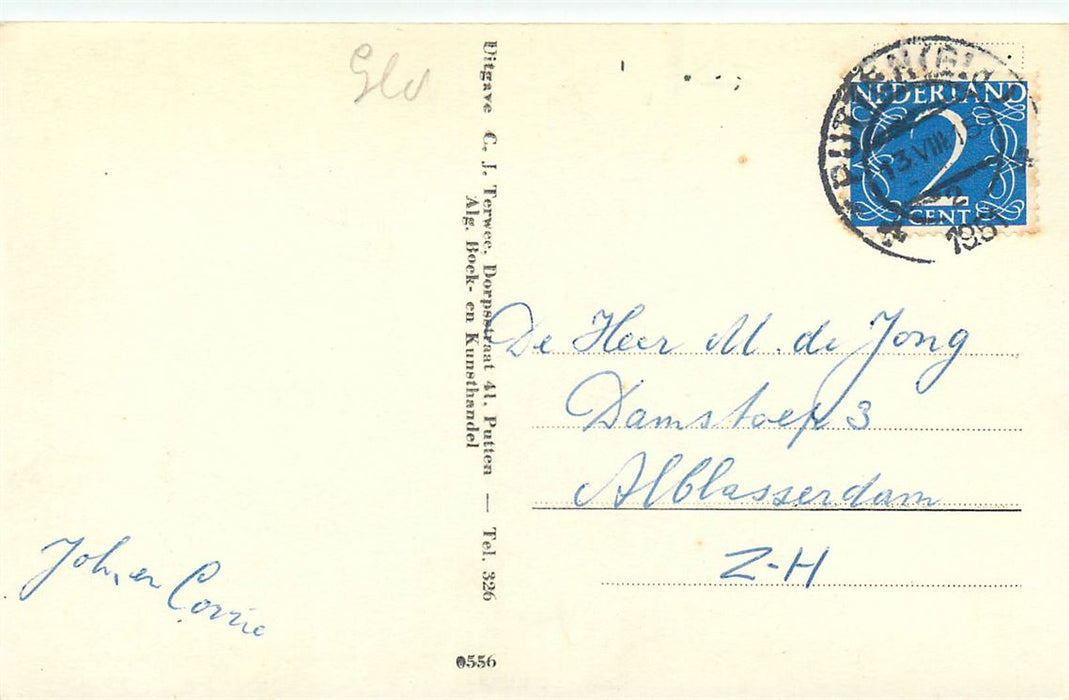 Gld
PUTTEN (GLD)
13.VIII.15
1957
NEDERLAND
2
CENT
Uitgave C. J. Terwee, Dorpsstraat 41, Putten — Tel. 326
Alg. Boek- en Kunsthandel
De Heer M. de Jong
Damstoep 3
Alblasserdam
Z-H
Joh, en Corrie
0556